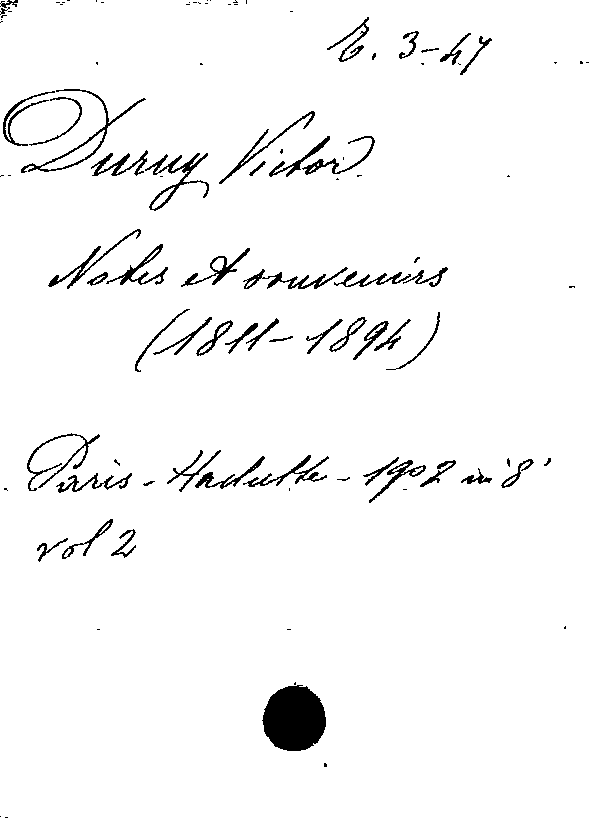 E. 3-47
Duruy Victor
Notes et souvenirs
(1811-1894)
Paris - Hachette - 1902 in 8°
vol 2